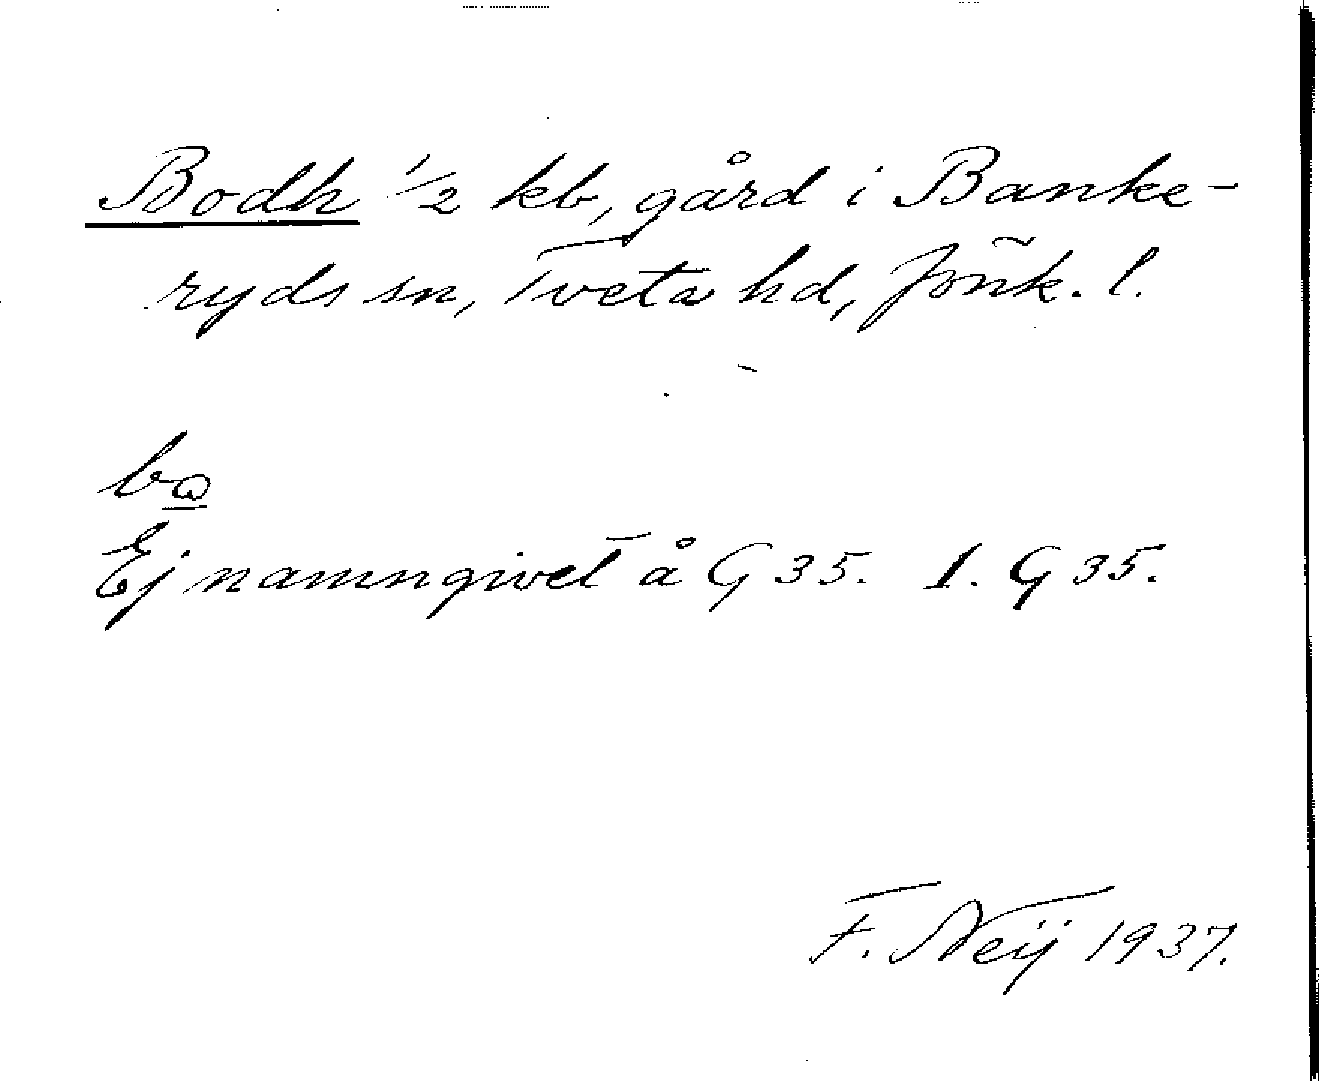 Bodh 1/2 kb, gård i Banke-
ryds sn, Tveta hd, Jönk. l.
Ej namngivet å G 35. 1. G 35.
F. Neij 1937.